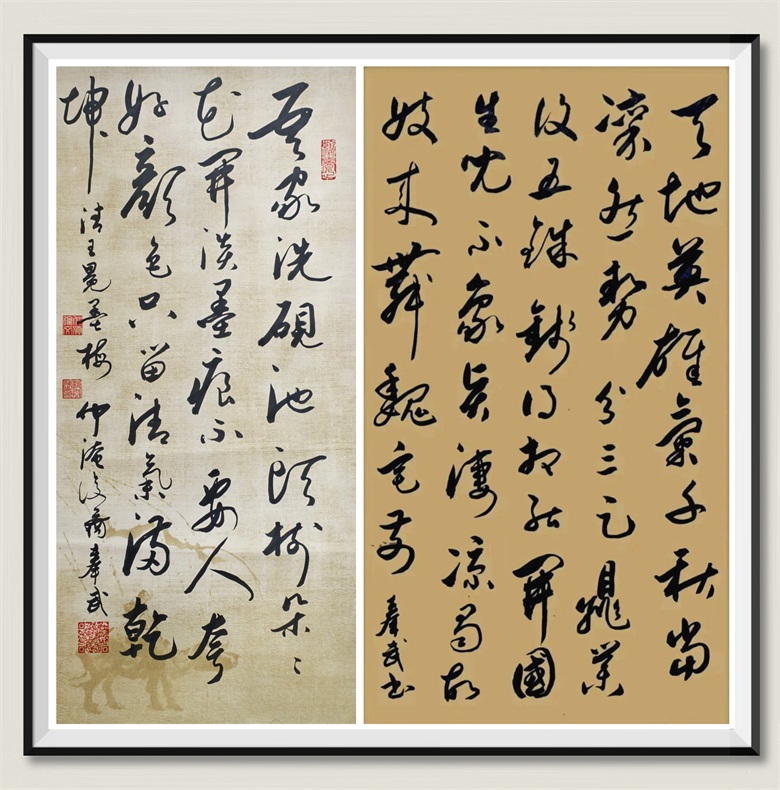 天地英雄氣千秋尚
凛然勢分三足鼎業
復五銖錢得相能開國
生兒不象賢淒涼蜀故
妓來舞魏宫前 奉武书
吾家洗硯池頭樹朵々
花開淡墨痕不要人夸
好顏色只留清氣滿乾
坤 清王冕墨梅 仲淹後裔奉武